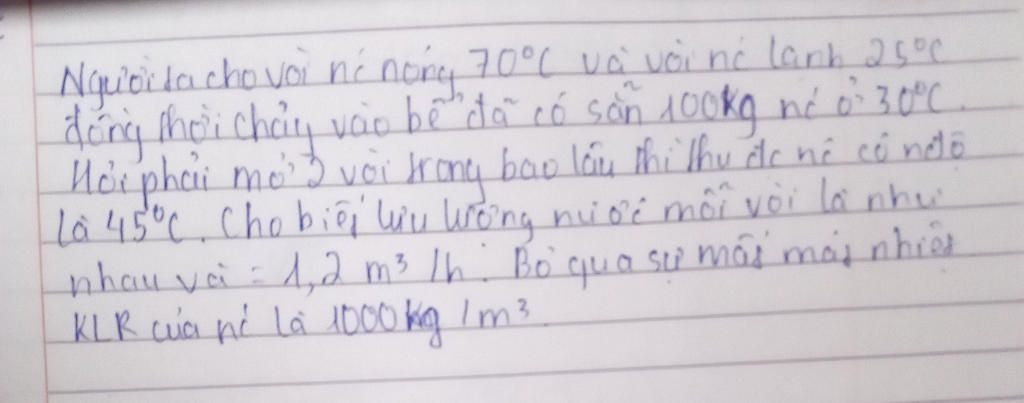 Người ta cho vòi nć nóng 70°C và vòi nć lạnh 25°C
đồng thời chảy vào bể đã có sẵn 100kg nć ở 30°C.
Hỏi phải mở 2 vòi trong bao lâu thì thu đc nć có nđộ
là 45°C. Cho biết lưu lượng nước mỗi vòi là như
nhau và = 1,2 m³/h. Bỏ qua sự mất mát nhiệt
KLR của nć là 1000kg/m³.